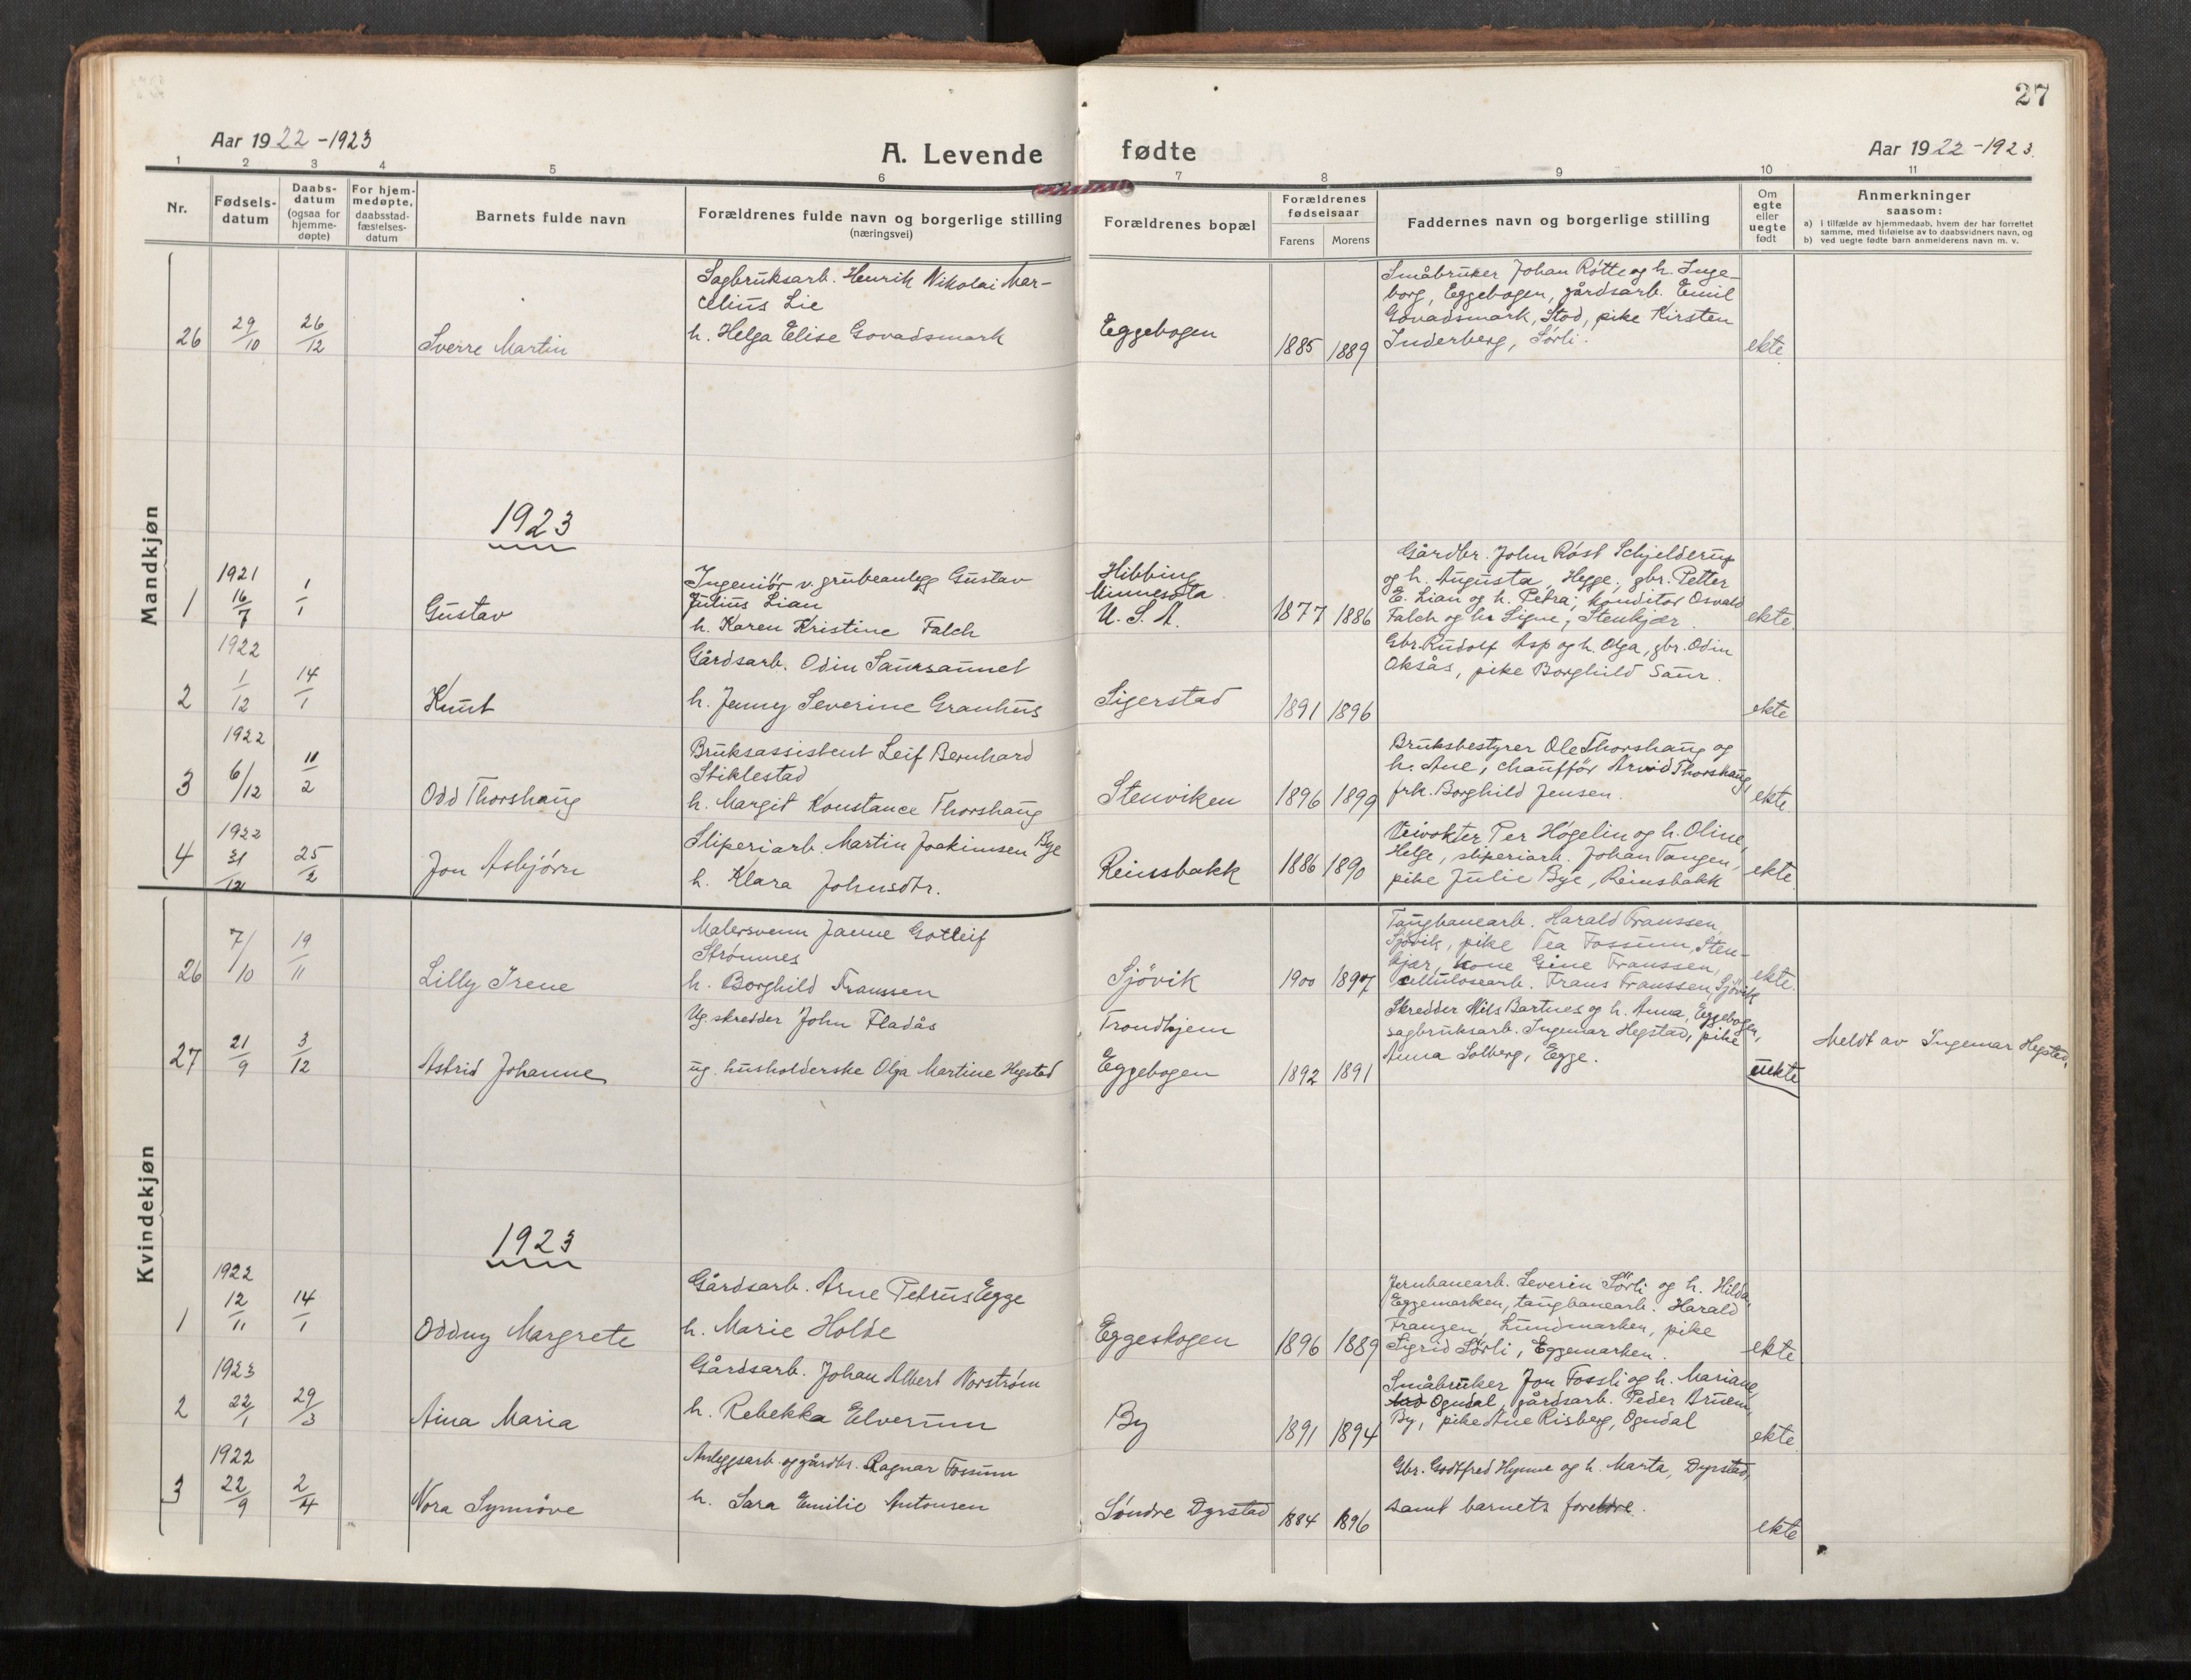 27
Aar 1922 -1923
A. Levende
fødte
Aar 1922 -1923.
1 2 3 4 5 6 7 8 9 10 11
Nr.
Fødsels-
datum
Daabs-
datum
(ogsaa for
hjemme-
døpte)
For hjem-
medøpte,
daabsstad-
fæstelses-
datum
Barnets fulde navn
Forældrenes fulde navn og borgerlige stilling
(næringsvei)
Forældrenes bopæl
Forældrenes
fødselsaar
Farens Morens
Faddernes navn og borgerlige stilling
Om
egte
eller
uegte
født
Anmerkninger
saasom:
a) i tilfælde av hjemmedaab, hvem der har forrettet
samme, med tilføielse av to daabsvidners navn, og
b) ved uegte fødte barn anmelderens navn m. v.
Mandkjøn
26
29/10
26/12
Sverre Martin
Sagbruksarb. Henrik Nikolai Mar-
celius Lie
h. Helga Elise Govadsmark
Eggebogen
1885 1889
Småbruker Johan Røtte og h. Inge-
borg, Eggebogen, gårdsarb. Emil
Govadsmark, Stod, pike Kirsten
Inderberg, Sørli.
ekte
1923
1
1921
16/7
1/1
Gustav
Ingeniør v. grubeanlegg Gustav
Julius Lian
h. Karen Kristine Falch
Hibbing
Minnesota
U. S. A.
1877 1886
Gårdbr. John Røst Schjelderup
og h. Augusta, Hegge; gbr. Petter
E. Lian og h. Petra; konditor Osvald
Falch og h. Signe, Stenkjær.
ekte.
2
1922
1/12
14/1
Knut
Gårdsarb. Odin Saursaunet
h. Jenny Severine Granhus
Sigerstad
1891 1896
Gbr. Rudolf Asp og h. Olga, gbr. Odin
Oksås, pike Borghild Saur.
ekte
3
1922
6/12
11/2
Odd Thorshaug
Bruksassistent Leif Bernhard
Stiklestad
h. Margit Konstance Thorshaug
Stenviken
1896 1899
Bruksbestyrer Ole Thorshaug og
h. Ane, chauffør Arvid Thorshaug,
frk. Borghild Jensen.
ekte.
4
1922
31/12
25/2
Jon Asbjørn
Sliperiarb. Martin Joakimsen Bye
h. Klara Johnsdtr.
Reinsbakk
1886 1890
Veivokter Per Høgelin og h. Oline,
Helge, sliperiarb. Johan Tangen,
pike Julie Bye, Reinsbakk
ekte.
Kvindekjøn
26
7/10
19/11
Lilly Irene
Malersvenn Janne Gotleif
Strømnes
h. Borghild Franssen
Sjövik
1900 1897
Taugbanearb. Harald Franssen,
Sjövik, pike Tea Fossum, Sten-
kjær, kone Gine Franssen,
cellulosearb. Frans Franssen, Sjövik
ekte.
27
21/9
3/12
Astrid Johanne
Ug. skredder John Fladås
ug. husholderske Olga Martine Hegstad
Trondhjem
Eggebogen
1892 1891
Skredder Nils Bartnes og h. Anna, Eggebogen,
sagbruksarb. Ingemar Hegstad, pike
Anna Solberg, Egge.
uekte
Meldt av Ingemar Hegstad,
1923
1
1922
12/11
14/1
Oddny Margrete
Gårdsarb. Arne Petrus Egge
h. Marie Holde
Eggeskogen
1896 1889
Jernbanearb. Severin Sörli og h. Hilda,
Eggemarken, taugbanearb. Harald
Franzen, Lundmarken, pike
Sigrid Sörli, Eggemarken.
ekte
2
1923
22/1
29/3
Aina Maria
Gårdsarb. Johan Albert Norstrøm
h. Rebekka Elverum
By
1891 1894
Småbruker Jon Fossli og h. Mariane,
Ogndal, gårdsarb. Peder Bruem,
By, pike Ane Risberg, Ogndal
ekte.
3
1922
22/9
2/4
Nora Synnøve
Anleggsarb. og gårdbr. Ragnar Fossum
h. Sara Emilie Antonsen
Søndre Dyrstad
1884 1896
Gbr. Godtfred Hynne og h. Marta, Dyrstad,
samt barnets foreldre.
ekte